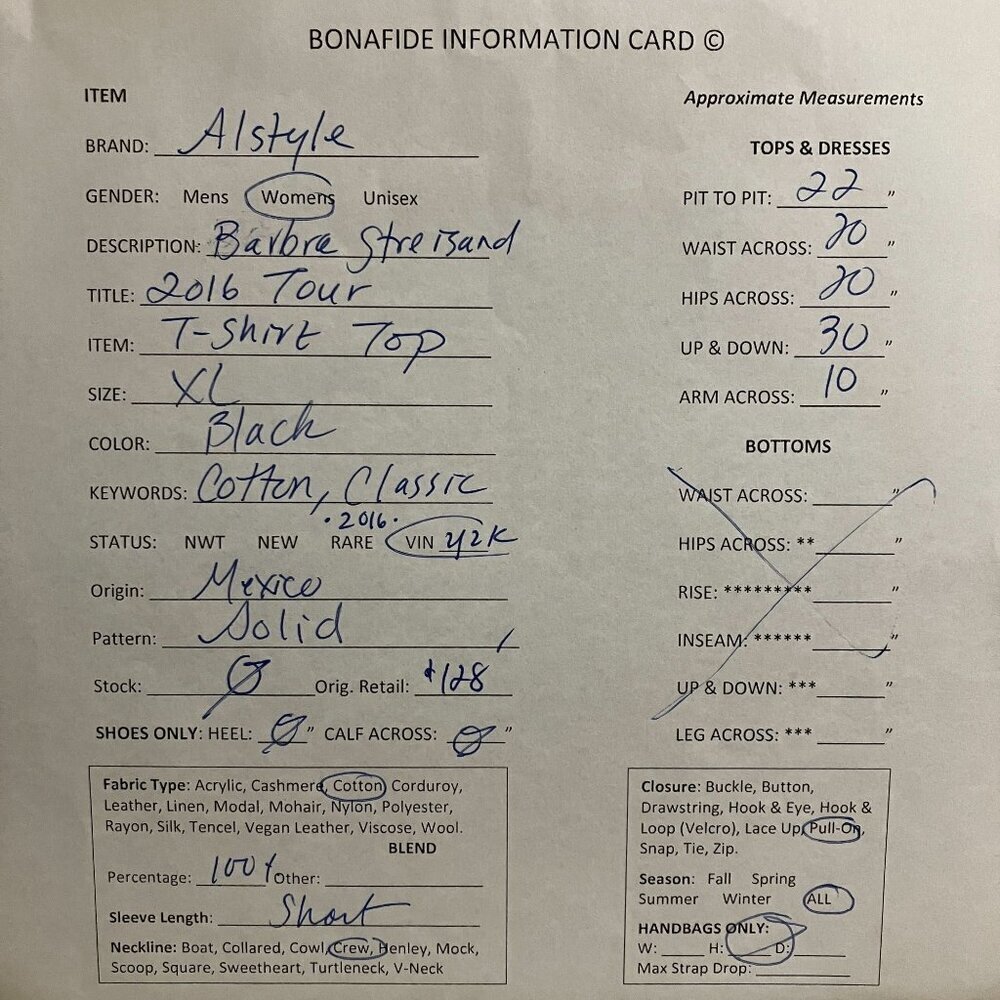 BONAFIDE INFORMATION CARD ©
ITEM
BRAND: Alstyle
GENDER: Mens Womens Unisex
DESCRIPTION: Barbra Streisand
TITLE: 2016 Tour
ITEM: T-Shirt Top
SIZE: XL
COLOR: Black
KEYWORDS: Cotton, Classic
·2016·
STATUS: NWT NEW RARE VIN y2k
Origin: Mexico
Pattern: Solid
Stock: Ø Orig. Retail: $128
SHOES ONLY: HEEL: Ø" CALF ACROSS: Ø"
Fabric Type: Acrylic, Cashmere, Cotton, Corduroy,
Leather, Linen, Modal, Mohair, Nylon, Polyester,
Rayon, Silk, Tencel, Vegan Leather, Viscose, Wool.
BLEND
Percentage: 100% Other:
Sleeve Length: Short
Neckline: Boat, Collared, Cowl, Crew, Henley, Mock,
Scoop, Square, Sweetheart, Turtleneck, V-Neck
Approximate Measurements
TOPS & DRESSES
PIT TO PIT: 22"
WAIST ACROSS: 20"
HIPS ACROSS: 20"
UP & DOWN: 30"
ARM ACROSS: 10"
BOTTOMS
WAIST ACROSS: "
HIPS ACROSS: ** "
RISE: ********* "
INSEAM: ****** "
UP & DOWN: *** "
LEG ACROSS: *** "
Closure: Buckle, Button,
Drawstring, Hook & Eye, Hook &
Loop (Velcro), Lace Up, Pull-On,
Snap, Tie, Zip.
Season: Fall Spring
Summer Winter ALL
HANDBAGS ONLY:
W: H: D:
Max Strap Drop: